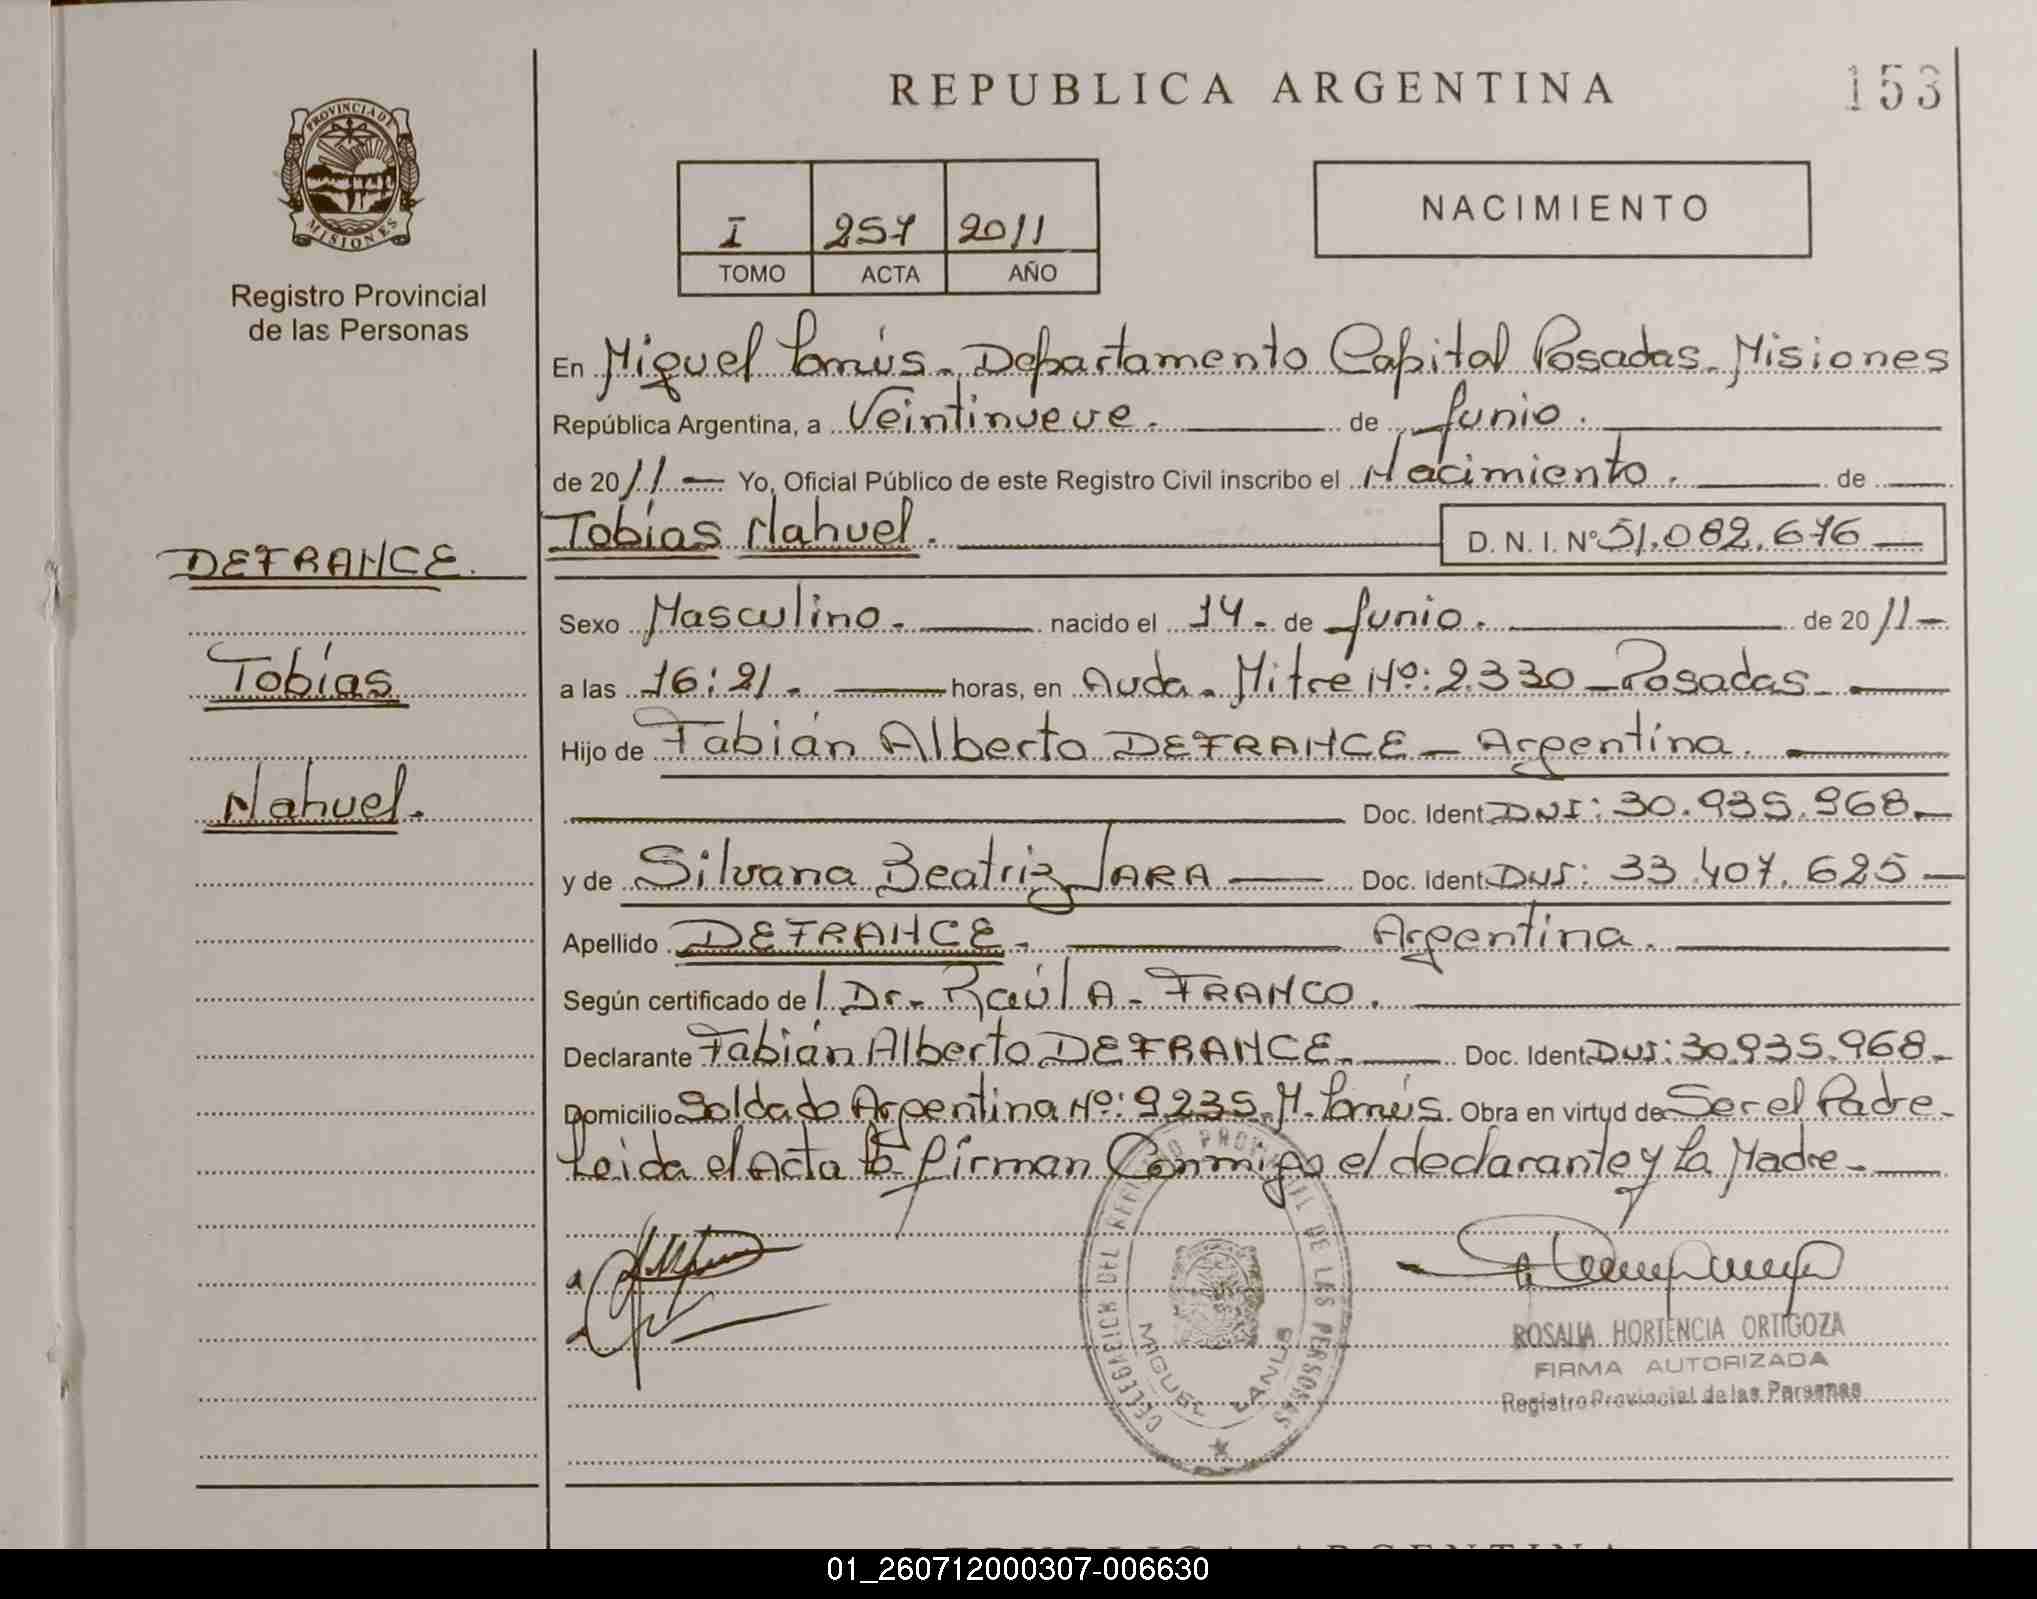 REPUBLICA ARGENTINA
153
PROVINCIA DE
MISIONES
Registro Provincial
de las Personas
I 257 2011
TOMO ACTA AÑO
NACIMIENTO
En Miguel Lanús. Departamento Capital Posadas. Misiones
República Argentina, a Veintinueve. de Junio.
de 2011 Yo, Oficial Público de este Registro Civil inscribo el Nacimiento. de
Tobías Nahuel. D. N. I. Nº 51.082.676
DEFRANCE.
Tobías
Nahuel.
Sexo Masculino. nacido el 14. de Junio. de 2011
a las 16:21. horas, en Avda. Mitre Nº: 2.330 Posadas
Hijo de Fabián Alberto DEFRANCE - Argentina.
Doc. Ident. DNI: 30.935.968.
y de Silvana Beatriz JARA Doc. Ident. DNI: 33.407.625
Apellido DEFRANCE. Argentina.
Según certificado de l Dr. Raúl A. FRANCO.
Declarante Fabián Alberto DEFRANCE. Doc. Ident. DNI: 30.935.968.
Domicilio Soldado Argentina Nº: 9.235. M. Lanús. Obra en virtud de Ser el Padre.
Leida el Acta la firman Conmigo el declarante y la Madre.
DELEGACION DEL REGISTRO PROVINCIAL DE LAS PERSONAS
MIGUEL LANUS
ROSALIA HORTENCIA ORTIGOZA
FIRMA AUTORIZADA
Registro Provincial de las Personas
REPUBLICA ARGENTINA
01_260712000307-006630